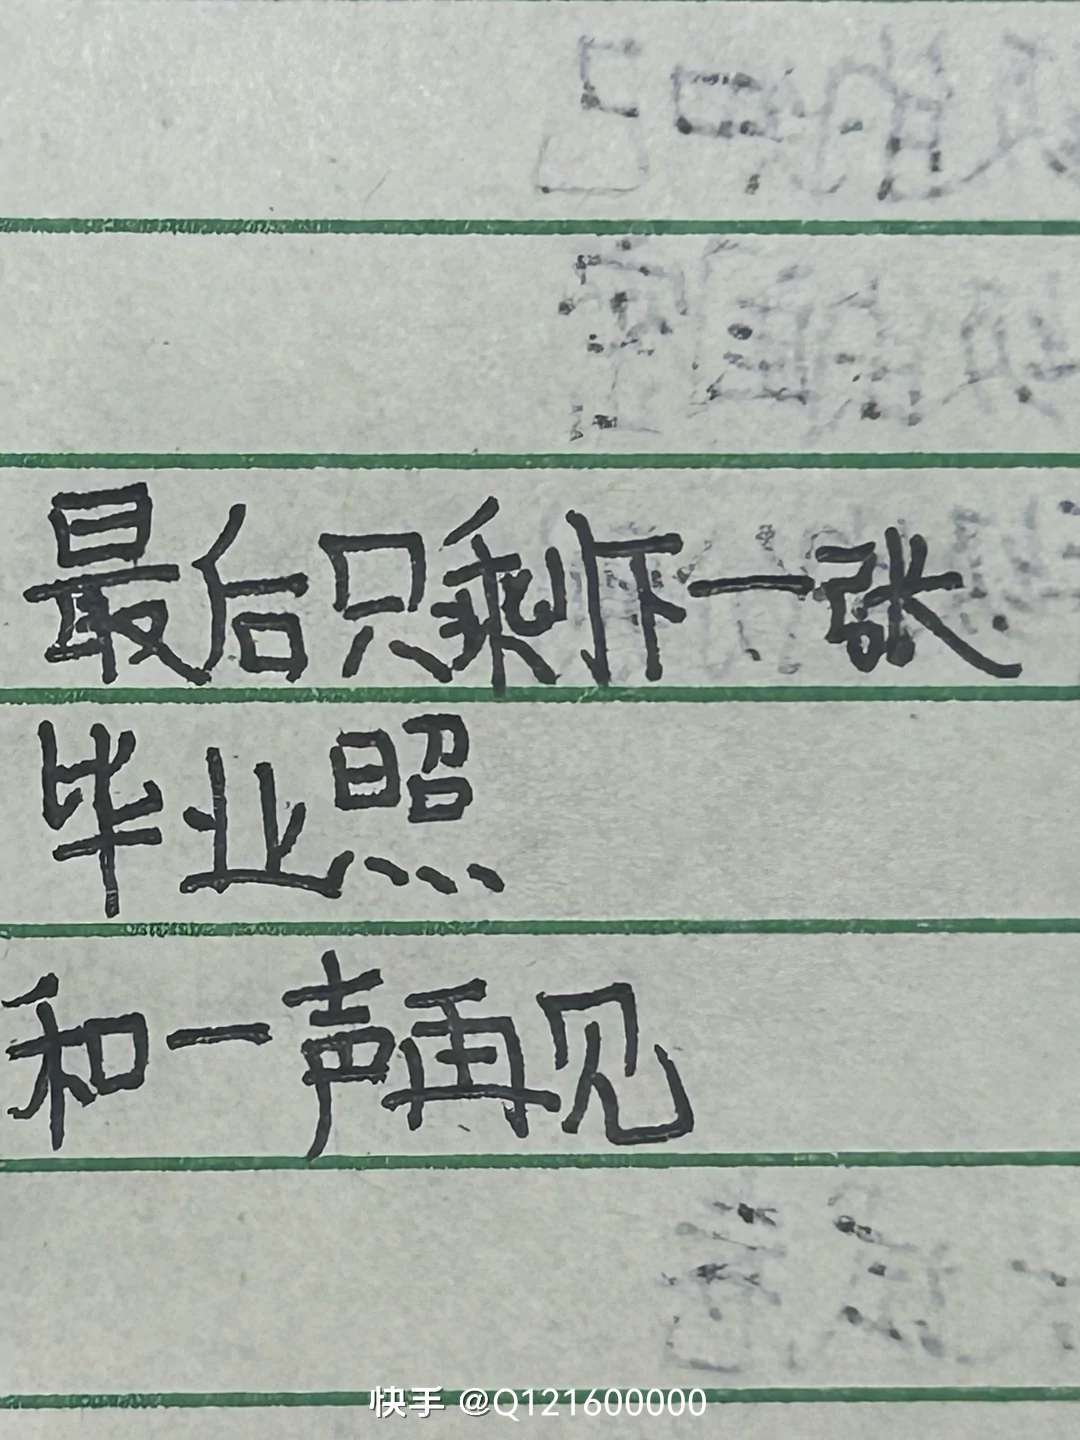 最后只剩下一张
毕业照
和一声再见
快手 @Q121600000